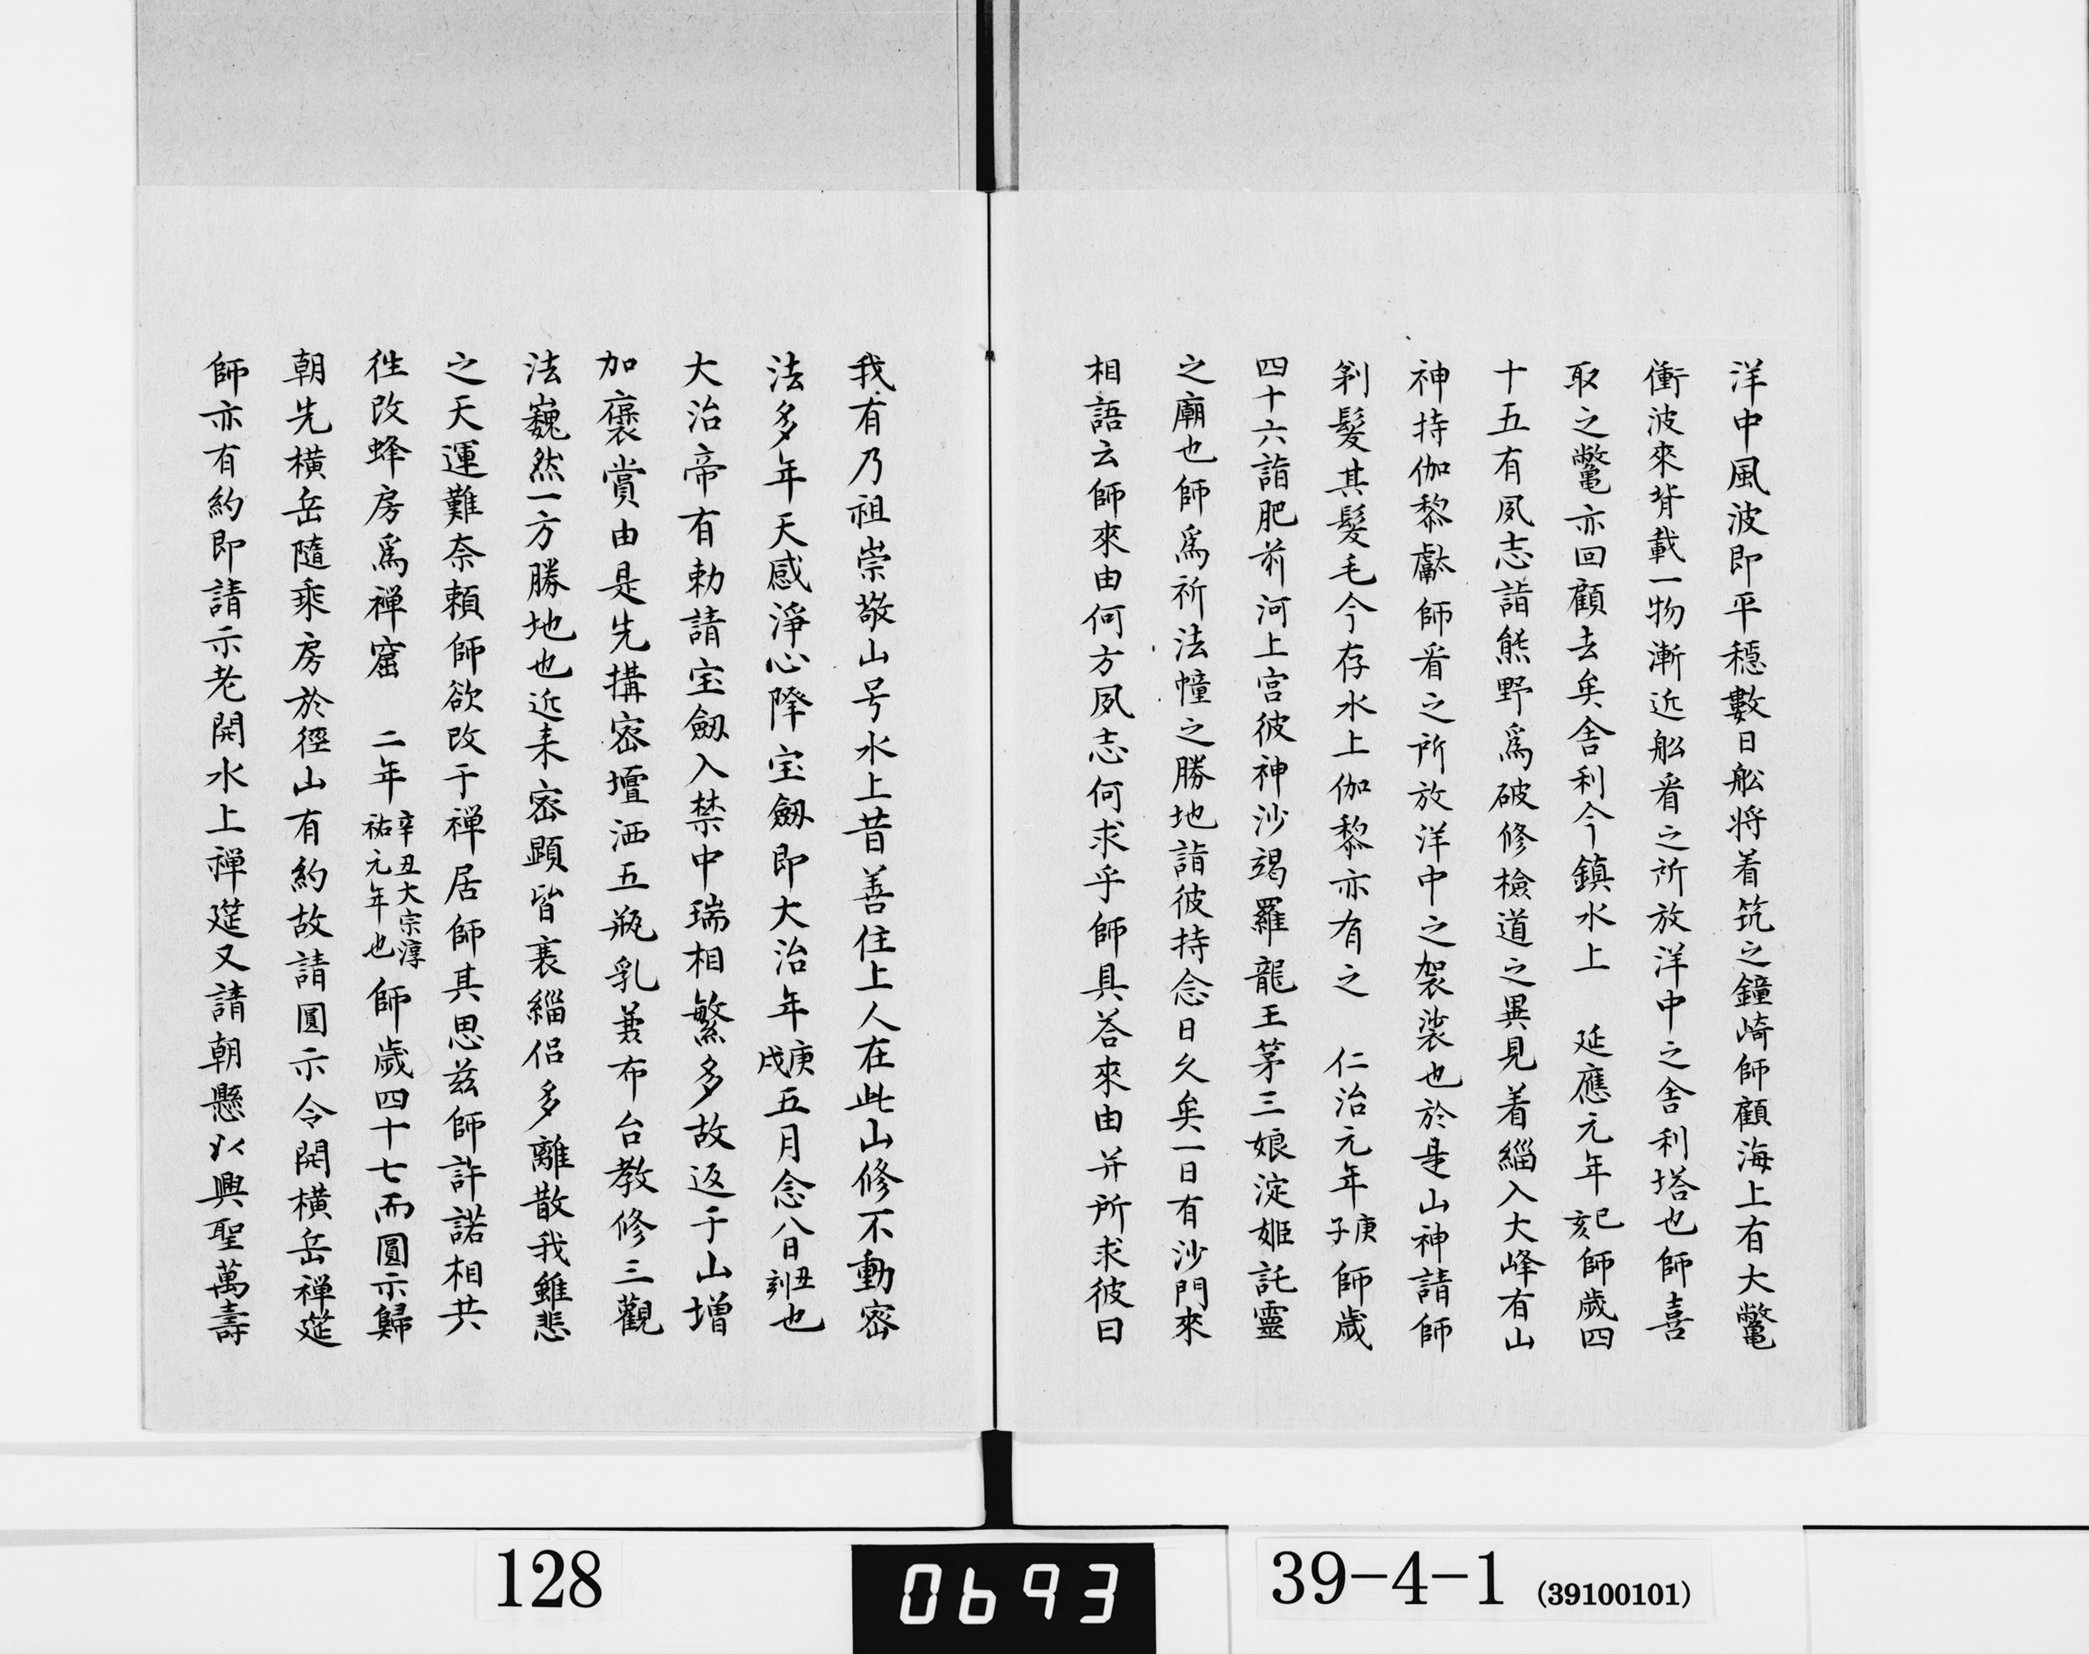 洋中風波即平穩數日舩将着筑之鐘﨑師顧海上有大鼈
衝波來背載一物漸近舩看之所放洋中之舎利塔也師喜
取之鼈亦回顧去矣舎利今鎮水上　延應元年己亥師歳四
十五有夙志詣熊野爲破修檢道之異見着緇入大峰有山
神持伽黎獻師看之所放洋中之袈裟也於是山神請師
剃髮其髮毛今存水上伽黎亦有之　仁治元年庚子師歳
四十六詣肥前河上宮彼神沙竭羅龍王苐三娘淀姫託靈
之廟也師爲祈法幢之勝地詣彼持念日久矣一日有沙門來
相語云師來由何方夙志何求乎師具荅來由并所求彼曰
我有乃祖崇敬山号水上昔善住上人在此山修不動密
法多年天感淨心降宝劔即大治年庚戌五月念八日丑刻也
大治帝有勅請宝劔入禁中瑞相繁多故返于山增
加褒賞由是先搆密壇洒五瓶乳兼布台教修三觀
法巍然一方勝地也近来密顕皆衰緇侶多離散我雖悲
之天運難奈頼師欲改于禅居師其思兹師許諾相共
徃改蜂房爲禅窟　二年辛丑大宗淳祐元年也師歳四十七而圓示歸
朝先橫岳隨乘房於徑山有約故請圓示令開橫岳禅莚
師亦有約即請示老開水上禅莚又請朝懸以興聖萬壽
128
0693
39-4-1 (39100101)